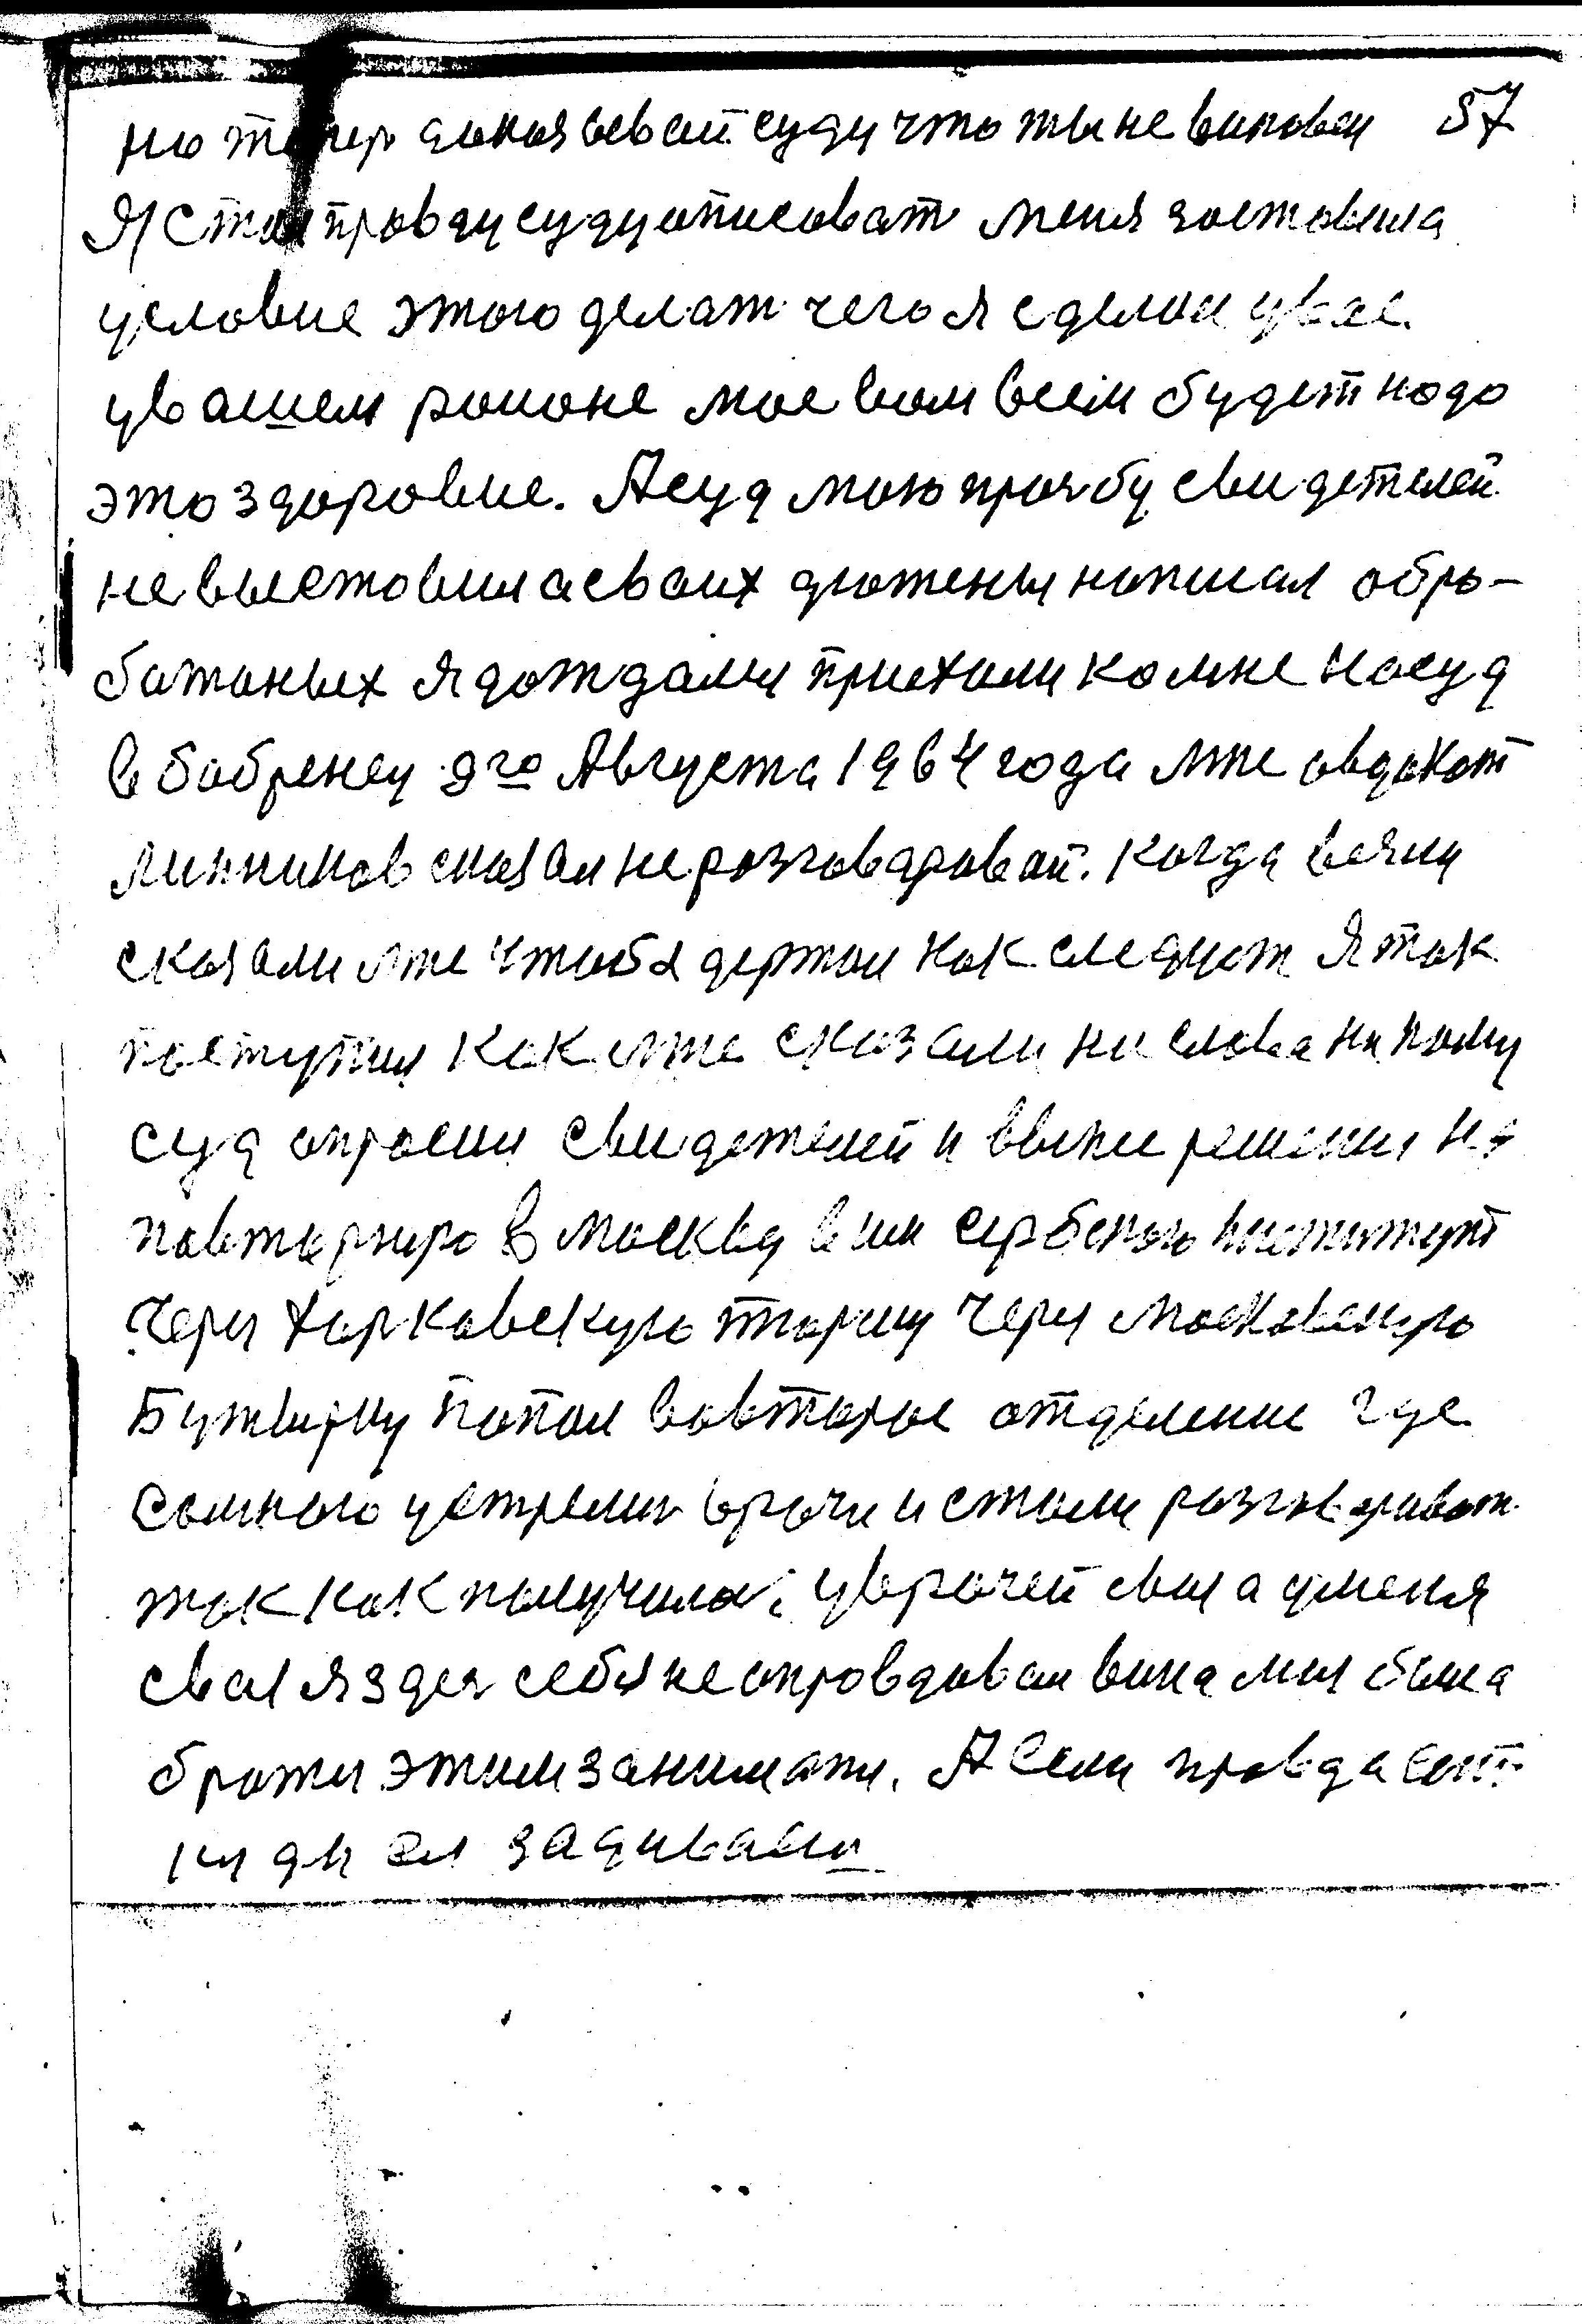 но тепер доказовай суду что ты не виновен 57
Я стал правду суду описоват меня заставила
условие этого делат чего я сделал увас
у вашем районе мое вам всем будет надо
это здоровие. А суд мою прозбу свидетелей
не выставил а своих дложеных написал обро-
батаных я дождалия приехали ко мне на суд
в бобренец 9го Августа 1964 года мне авдокат
Линников сказал не разговаровай. когда взяли
сказали мне чтобы держал как следует я так
поступил как мне сказали ни слова никому
суд опросил свидетелей и вынес решения на
повторную в москву в им сербского институт
через харковскую торму через московскую
Бутырку попал во второе отделение где
самного устретил врачи и стали разговариват
так как получилос у врачей своя а у меня
своя я здес себя не оправдовал вина моя была
братся этим занимат. А если правда ест
куды ея задиваеш